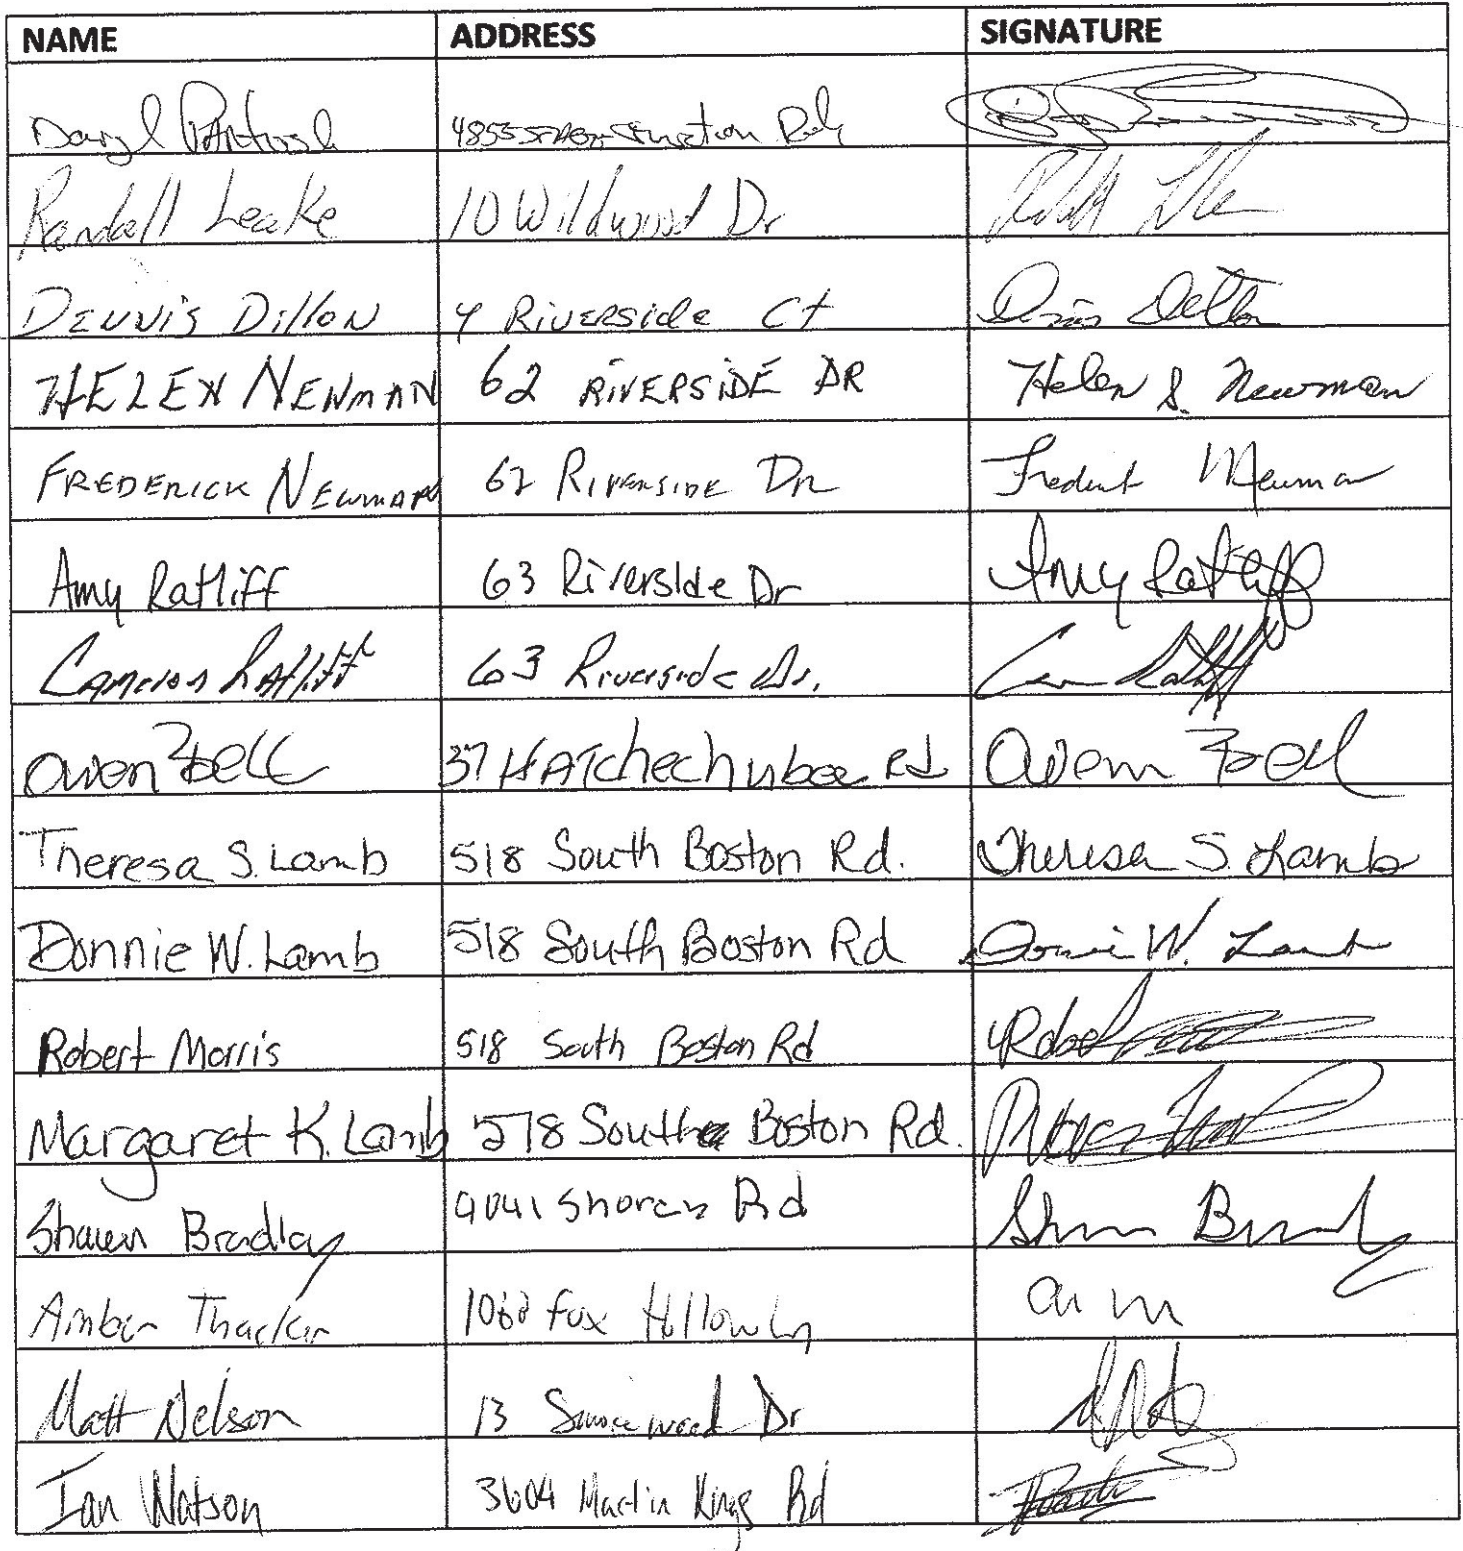 NAME ADDRESS SIGNATURE
Daryl
Randall Leake 10 Wildwood Dr
Dennis Dillon 4 Riverside Ct
HELEN NEWMAN 62 RIVERSIDE DR Helen S. Newman
FREDERICK NEWMAN 62 RIVERSIDE DR Newman
Amy Ratliff 63 Riverside Dr Amy Ratliff
Cameron Ratliff 63 Riverside Dr.
Owen Bell 37 HATchechubee Rd Owen Bell
Theresa S. Lamb 518 South Boston Rd. Theresa S. Lamb
Donnie W. Lamb 518 South Boston Rd Donnie W. Lamb
Robert Morris 518 South Boston Rd
Margaret K. Lamb 518 South Boston Rd.
Shawn Bradley Rd
Amber Thacker Fox
Matt Nelson 13 Dr
Ian Watson 3604 Martin Kings Rd